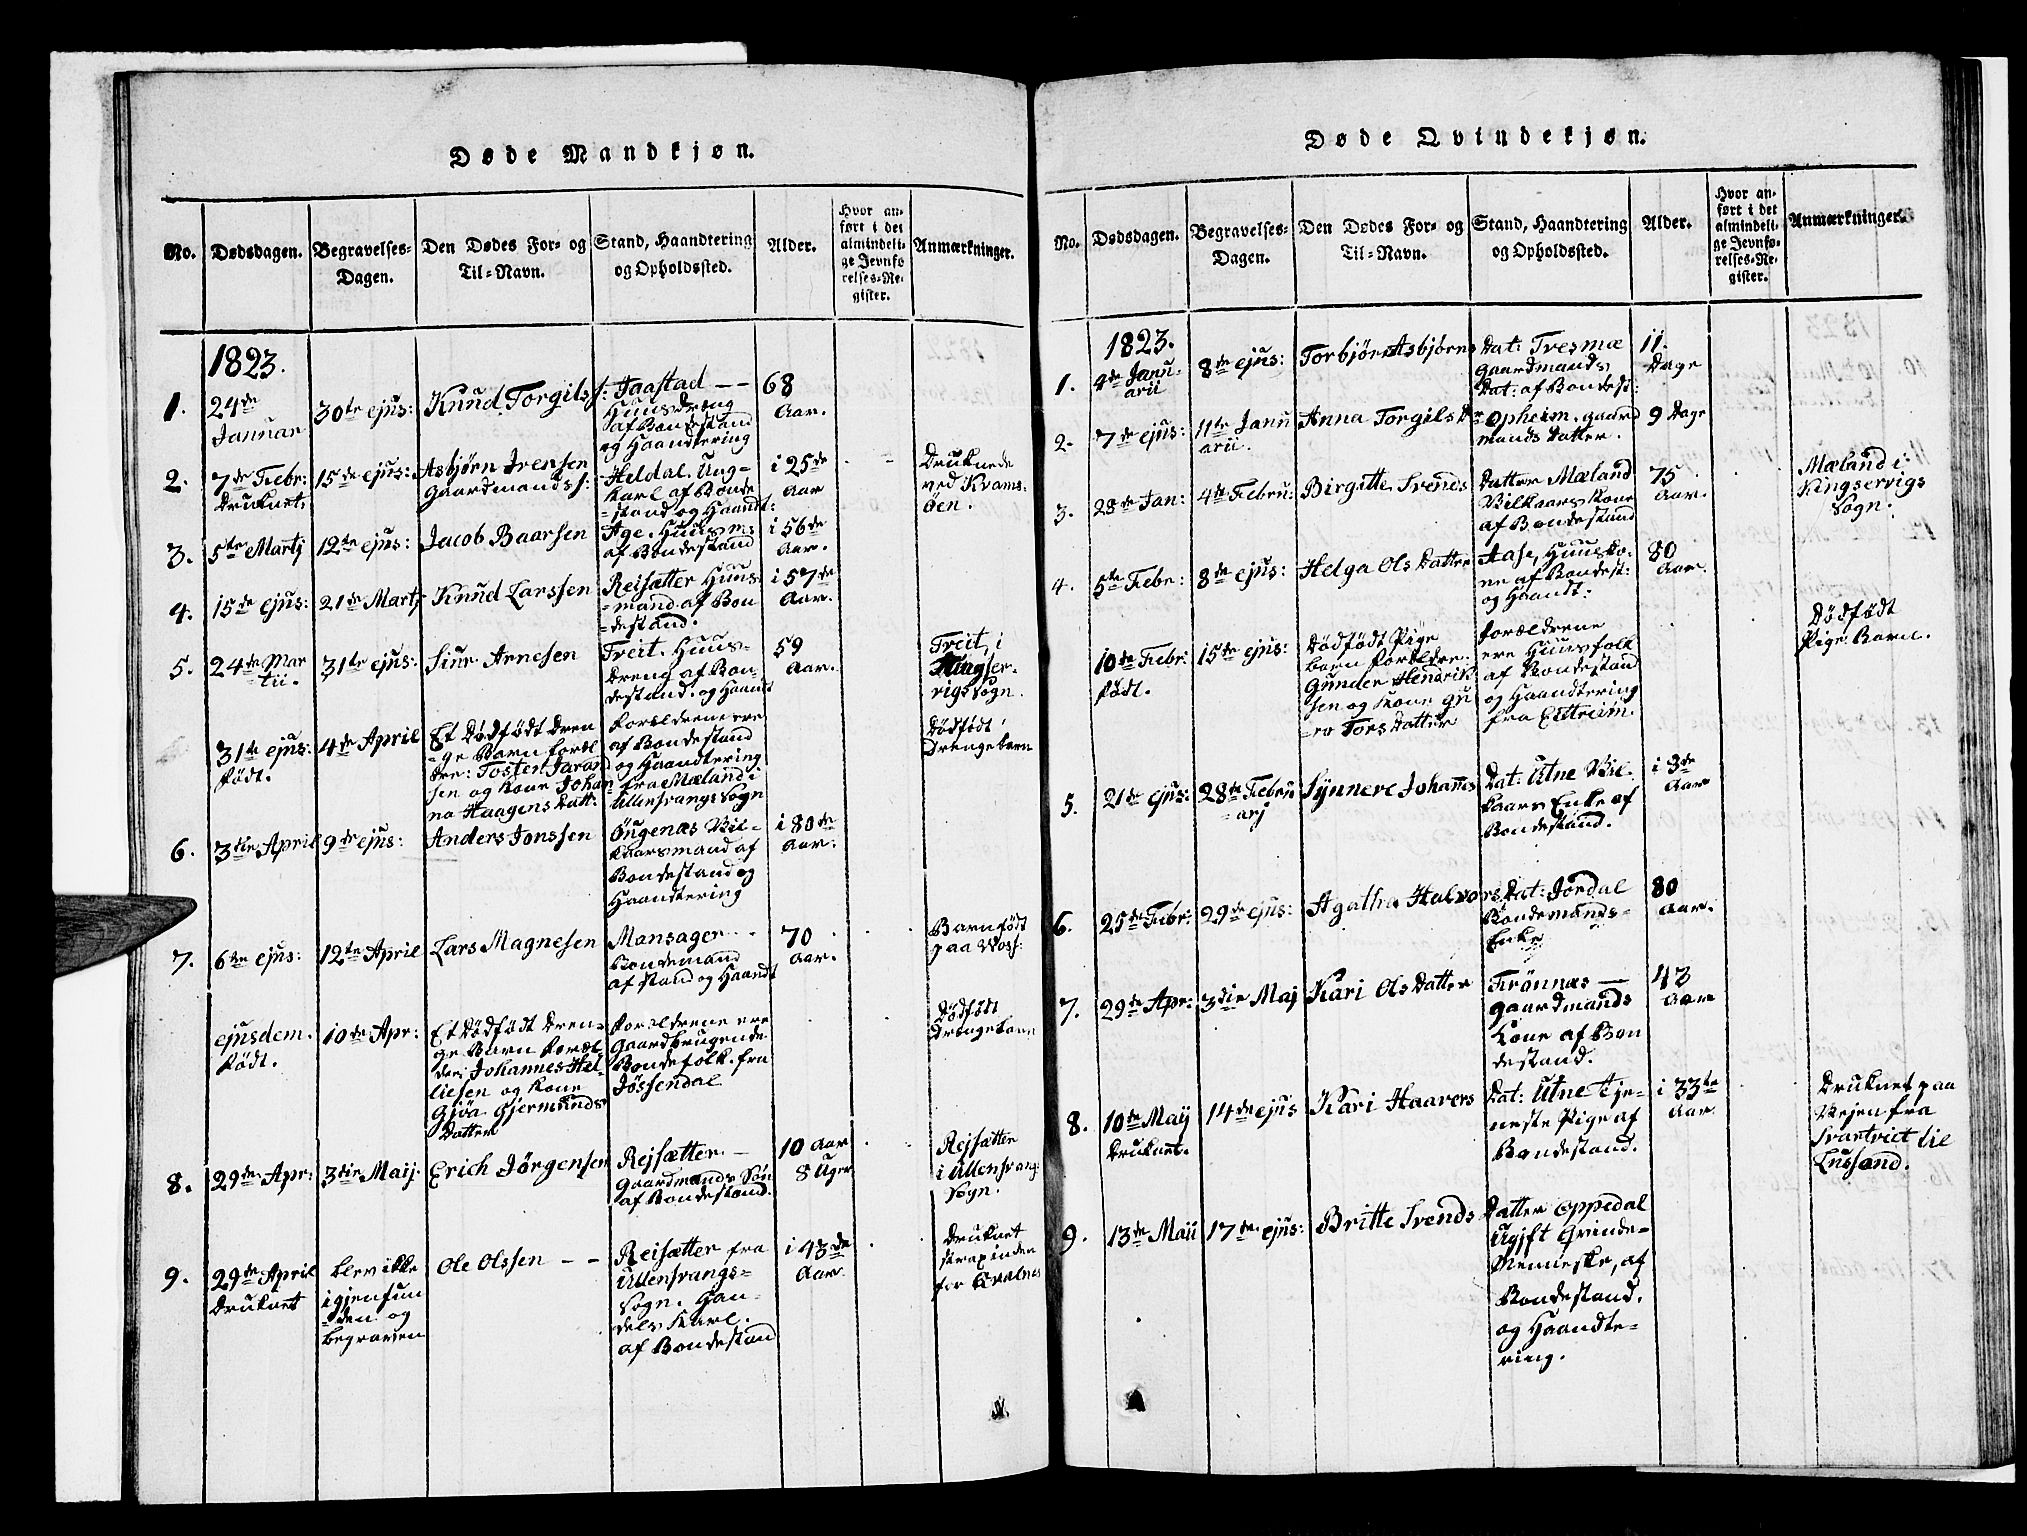 Døde Mandkjøn.
No. Dødsdagen. Begravelses-Dagen. Den Dødes For- og Til-Navn. Stand, Haandtering og Opholdssted. Alder. Hvor anført i det almindelige Jevnførelses-Register. Anmærkninger.
1823.
1. 24de Januar
30te ejus:
Knud Torgils s:
Jaastad — —
Huusdreng
af Bondestand
og Haandtering
68
Aar.
2. 7de Febr:
Druknet,
15de ejus:
Asbjørn Ivensen
Gaardmands s:
Heldal. Ung-
karl af Bonde
-stand og Haandt:
i 25de
Aar
Druknede
ved Kvams-
öen.
3. 5te Martj
12te ejus:
Jacob Baarsen
Age. Huusm:
af Bondestand
i 56de
Aar.
4. 15de ejus:
21de Martj
Knud Larssen
Reisæter Huus
-mand af Bon
-destand.
i 57de
Aar.
5. 24de Mar
tii.
31te ejus:
Siur Arnesen
Freit. Huus-
Dreng af Bon-
destand. og Haandt
59
Aar.
Freit, i
Kingser-
vigs Sogn.
31te ejus:
født.
4de April
Et Dødfødt Dren
-ge Barn foræl
dre: Tosten Jarand
sen og Kone Johan
na Haagens Datt:
forældrene ere
af Bondestand
og Haandtering
fra Mæland i
Ullensvangs Sogn
Dødfødt
Drengebarn
6. 3die April
9de ejus:
Anders Jonssen
Öugenæs Vil-
kaarsmand af
Bondestand og
Haandtering
i 80de
Aar.
7. 6te ejus:
12te April
Lars Magnesen
Mansager
Bondemand
af stand og Haandt
70
Aar.
Barnfødt
paa Voss.
ejusdem.
født.
10de Apr:
Et Dødfødt Dren-
ge Barn foræl-
dre: Johannes Hel-
liesen og Kone
Gjöa Gjermunds
Datter
forældrene ere
Gaardbrugende
Bondefolk. fra
Jössendal
Dødfödt
Drengebarn
8. 29de Apr:
3die Maij.
Erich Jörgensen
Rejsæter. —
Gaardmands Søn
af Bondestand.
10 Aar
8 Uger
Rejsæter
i Ullensvang
Sogn.
9. 29de April
Druknet
blev ikke
igjenfun
den og
begraven
Ole Olssen — —
Reisæter fra
Ullensvangs-
Sogn. Han-
dels Karl.
af Bondestand
i 43de
Aar.
Druknet
for Kvalnes
Døde Qvindekjøn.
No. Dødsdagen. Begravelses-Dagen. Den Dødes For- og Til-Navn. Stand, Haandtering og Opholdssted. Alder. Hvor anført i det almindelige Jevnførelses-Register. Anmærkninger.
1823.
1. 4de Janu-
arii
8de ejus:
Torbjör Asbjörns
Dat: Tresmæ
Gaardmands
Dat: af Bondest:
11.
Dage
2. 7de ejus:
11te Janu
arii.
Anna Torgils Dr
Opheim. gaard
mands Datter.
9 Dage
3. 28de Jan:
4de Febru:
Birgitte Svends
Datter Mæland
Vilkaars Kone
af Bondestand
75
Aar.
Mæland i
Kingservigs
Sogn.
4. 5te Febr:
8de ejus:
Helga Ols Datter
Aase, Huusko-
ne af Bondest:
og Haandt:
80
Aar.
10de Febr:
født.
15de ejus:
Dødfødt Pige
barn forældre:
Gunder Hendrik
sen og Kone Gu
-ro Tors Datter
forældrene
ere Huusfolk
af Bondestand
og Haandtering
fra Eittreim.
Dødfødt
Pige Barn.
5. 21de ejus:
28de Febru
arj
Synneve Johanes
Dat: Utne Vil-
kaars Enke af
Bondestand.
i 3de
Aar
6. 25de Febr:
29de ejus:
Agatha Halvors
Dat: Jordal
Bondemands-
Enke
80
Aar.
7. 29de Apr:
3die Maj
Kari Ols Datter
Frönnæs —
gaardmands
Kone af Bon
destand.
43
Aar
8. 10de Maij
Druknet.
14de ejus
Kari Haavers
Dat: Utne Tje-
neste Pige af
Bondestand.
i 33te
Aar
Druknet paa
Vejen fra
til
Lussand.
9. 13de Maii
17de ejus:
Britte Svends
Datter Oppedal
Ugift Qvinde-
Menneske, af
Bondestand.
og Haandte-
ring.